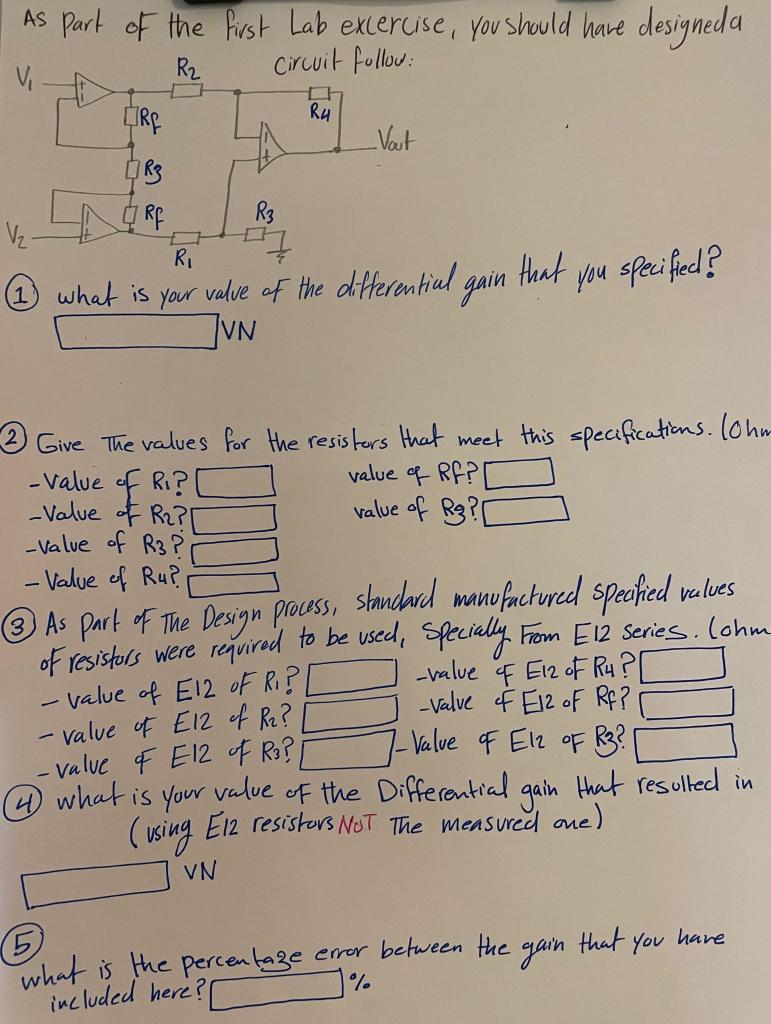 As Part of the first Lab excercise, you should have designed a
circuit follow:
V1
R2
R4
Rf
Vout
Rg
Rf
R3
V2
R1
① what is your value of the differential gain that you specified?
VN
② Give The values for the resistors that meet this specifications. (Ohm
- Value of R1? value of Rf?
- Value of R2? value of Rg?
- Value of R3?
- Value of R4?
③ As part of The Design process, standard manufactured specified values
of resistors were required to be used, Specially From E12 series. (ohm
- value of E12 of R1? - value of E12 of R4?
- value of E12 of R2? - value of E12 of Rf?
- value of E12 of R3? - Value of E12 of Rg?
④ what is your value of the Differential gain that resulted in
(using E12 resistors NOT The measured one)
VN
⑤
what is the percentage error between the gain that you have
included here? %